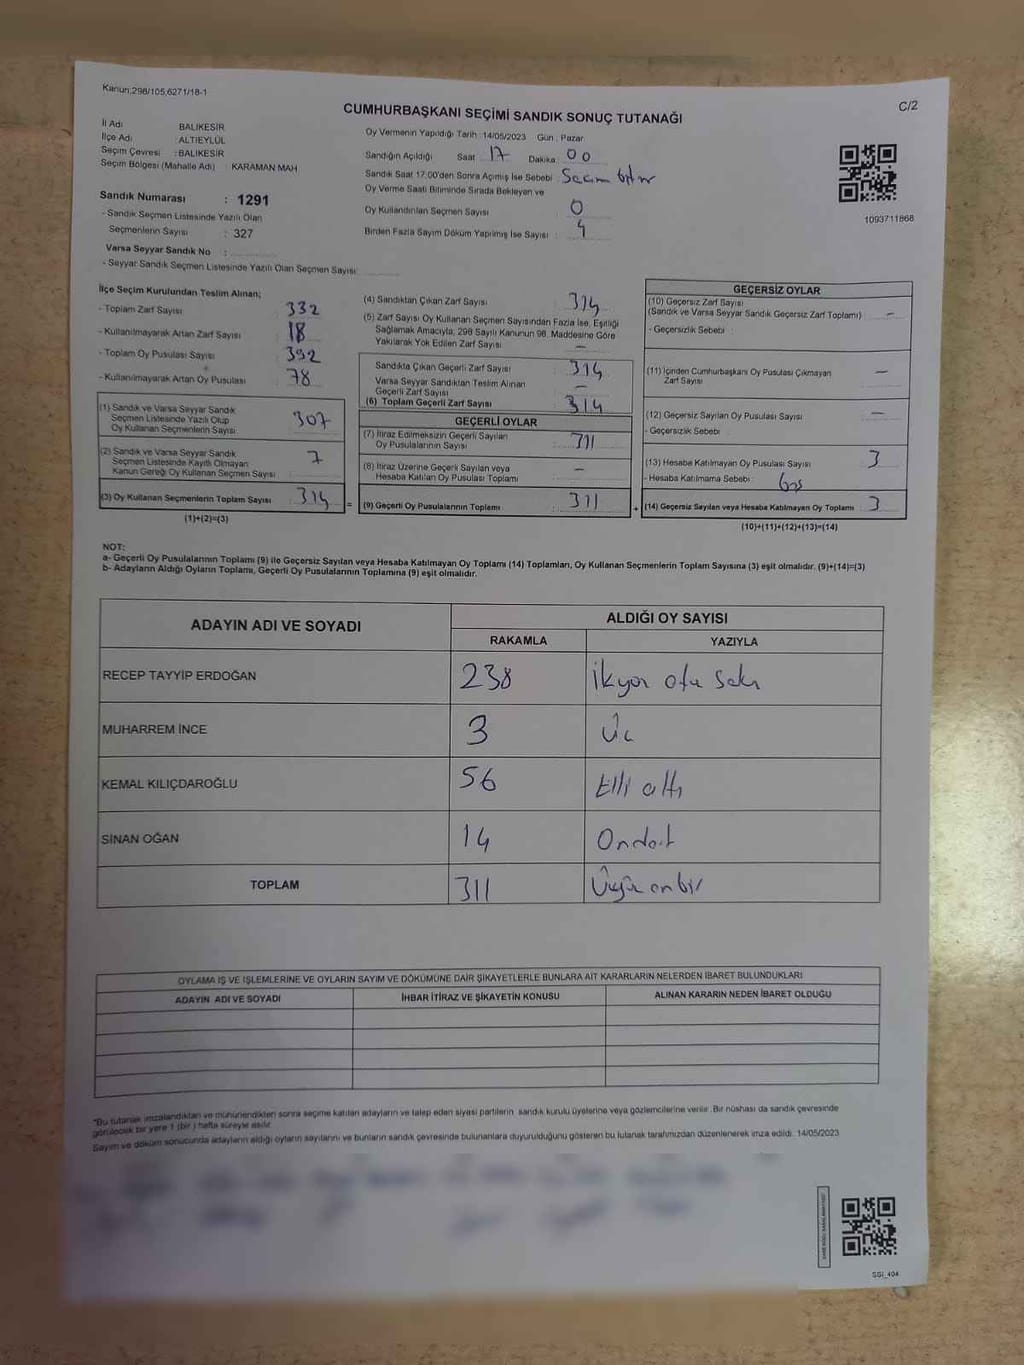 Kanun:298/105,6271/18-1
C/2
CUMHURBAŞKANI SEÇİMİ SANDIK SONUÇ TUTANAĞI
İl Adı : BALIKESİR
İlçe Adı : ALTIEYLÜL
Seçim Çevresi : BALIKESİR
Seçim Bölgesi (Mahalle Adı) : KARAMAN MAH
Sandık Numarası : 1291
- Sandık Seçmen Listesinde Yazılı Olan
Seçmenlerin Sayısı : 327
Varsa Seyyar Sandık No :
- Seyyar Sandık Seçmen Listesinde Yazılı Olan Seçmen Sayısı
Oy Vermenin Yapıldığı Tarih :14/05/2023 Gün : Pazar
Sandığın Açıldığı Saat 17 Dakika 00
Sandık Saat 17:00'den Sonra Açılmış İse Sebebi : Seçim
Oy Verme Saati Bitiminde Sırada Bekleyen ve
Oy Kullandırılan Seçmen Sayısı : 0
Birden Fazla Sayım Döküm Yapılmış İse Sayısı : 4
1093711868
İlçe Seçim Kurulundan Teslim Alınan;
- Toplam Zarf Sayısı : 332
- Kullanılmayarak Artan Zarf Sayısı : 18
- Toplam Oy Pusulası Sayısı : 392
- Kullanılmayarak Artan Oy Pusulası : 78
(1) Sandık ve Varsa Seyyar Sandık
Seçmen Listesinde Yazılı Olup
Oy Kullanan Seçmenlerin Sayısı : 307
(2) Sandık ve Varsa Seyyar Sandık
Seçmen Listesinde Kayıtlı Olmayan
Kanun Gereği Oy Kullanan Seçmen Sayısı : 7
(3) Oy Kullanan Seçmenlerin Toplam Sayısı : 314 =
(1)+(2)=(3)
(4) Sandıktan Çıkan Zarf Sayısı : 314
(5) Zarf Sayısı Oy Kullanan Seçmen Sayısından Fazla İse, Eşitliği
Sağlamak Amacıyla, 298 Sayılı Kanunun 98. Maddesine Göre
Yakılarak Yok Edilen Zarf Sayısı : -
Sandıkta Çıkan Geçerli Zarf Sayısı : 314
Varsa Seyyar Sandıktan Teslim Alınan
Geçerli Zarf Sayısı : -
(6) Toplam Geçerli Zarf Sayısı : 314
GEÇERLİ OYLAR
(7) İtiraz Edilmeksizin Geçerli Sayılan
Oy Pusulalarının Sayısı : 311
(8) İtiraz Üzerine Geçerli Sayılan veya
Hesaba Katılan Oy Pusulası Toplamı : -
(9) Geçerli Oy Pusulalarının Toplamı : 311 +
GEÇERSİZ OYLAR
(10) Geçersiz Zarf Sayısı
(Sandık ve Varsa Seyyar Sandık Geçersiz Zarf Toplamı) : -
- Geçersizlik Sebebi :
(11) İçinden Cumhurbaşkanı Oy Pusulası Çıkmayan
Zarf Sayısı : -
(12) Geçersiz Sayılan Oy Pusulası Sayısı : -
- Geçersizlik Sebebi :
(13) Hesaba Katılmayan Oy Pusulası Sayısı : 3
- Hesaba Katılmama Sebebi : boş
(14) Geçersiz Sayılan veya Hesaba Katılmayan Oy Toplamı : 3
(10)+(11)+(12)+(13)=(14)
NOT:
a- Geçerli Oy Pusulalarının Toplamı (9) ile Geçersiz Sayılan veya Hesaba Katılmayan Oy Toplamı (14) Toplamları, Oy Kullanan Seçmenlerin Toplam Sayısına (3) eşit olmalıdır. (9)+(14)=(3)
b- Adayların Aldığı Oyların Toplamı, Geçerli Oy Pusulalarının Toplamına (9) eşit olmalıdır.
ADAYIN ADI VE SOYADI ALDIĞI OY SAYISI
RAKAMLA YAZIYLA
RECEP TAYYİP ERDOĞAN 238 İkiyüz otuz Sekiz
MUHARREM İNCE 3 Üç
KEMAL KILIÇDAROĞLU 56 Elli altı
SİNAN OĞAN 14 Ondört
TOPLAM 311 Üçyüz on bir
OYLAMA İŞ VE İŞLEMLERİNE VE OYLARIN SAYIM VE DÖKÜMÜNE DAİR ŞİKAYETLERLE BUNLARA AİT KARARLARIN NELERDEN İBARET BULUNDUKLARI
ADAYIN ADI VE SOYADI İHBAR İTİRAZ VE ŞİKAYETİN KONUSU ALINAN KARARIN NEDEN İBARET OLDUĞU
*Bu tutanak imzalandıktan ve mühürlendikten sonra seçime katılan adayların ve talep eden siyasi partilerin sandık kurulu üyelerine veya gözlemcilerine verilir. Bir nüshası da sandık çevresinde
görülecek bir yere 1 (bir) hafta süreyle asılır.
Sayım ve döküm sonucunda adayların aldığı oyların sayılarını ve bunların sandık çevresinde bulunanlara duyurulduğunu gösteren bu tutanak tarafımızdan düzenlenerek imza edildi. 14/05/2023
SSI_404